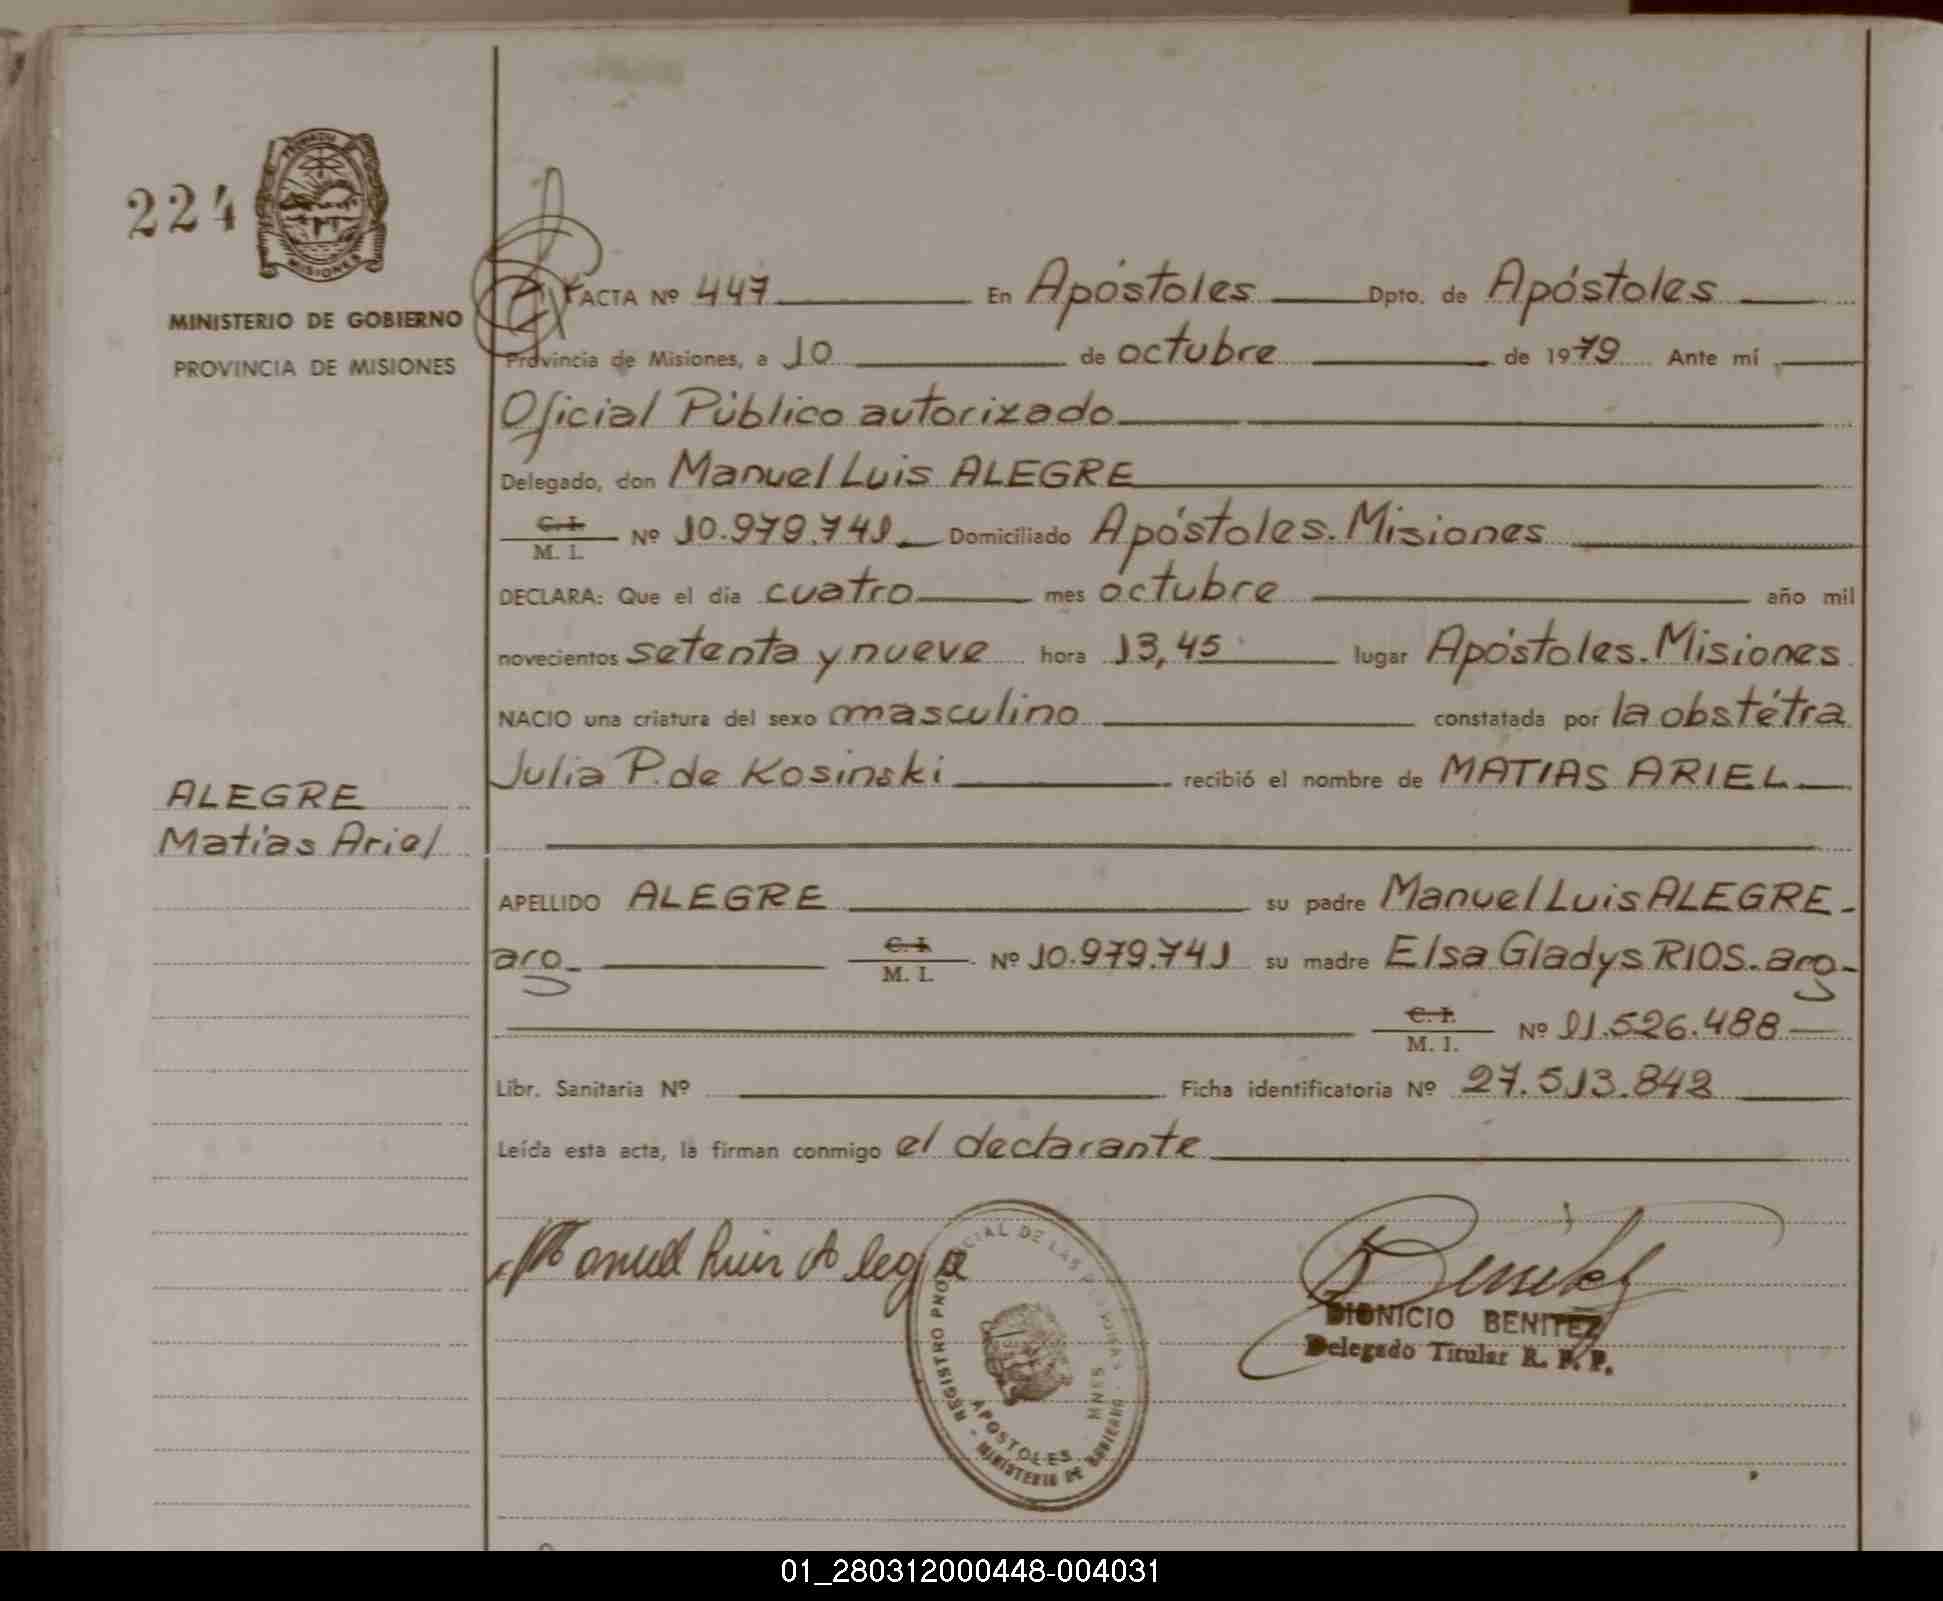 224
MISIONES
MINISTERIO DE GOBIERNO
PROVINCIA DE MISIONES
ACTA Nº 447 En Apóstoles Dpto. de Apóstoles
Provincia de Misiones, a 10 de octubre de 1979 Ante mí
Oficial Público autorizado
Delegado, don Manuel Luis ALEGRE
C. I.
M. I. Nº 10.979.741 Domiciliado Apóstoles. Misiones
DECLARA: Que el dia cuatro mes octubre año mil
novecientos setenta y nueve hora 13,45 lugar Apóstoles. Misiones
NACIO una criatura del sexo masculino constatada por la obstétra
Julia P. de Kosinski recibió el nombre de MATIAS ARIEL
ALEGRE
Matías Ariel
APELLIDO ALEGRE su padre Manuel Luis ALEGRE-
arg- C. I.
M. I. Nº 10.979.741 su madre Elsa Gladys RIOS. arg-
C. I.
M. I. Nº 11.526.488
Libr. Sanitaria Nº Ficha identificatoria Nº 27.513.842
Leída esta acta, la firman conmigo el declarante
Manuel Luis Alegre
Benitez
DIONICIO BENITEZ
Delegado Titular R. P. P.
REGISTRO PROVINCIAL DE LAS PERSONAS
APOSTOLES MNES
MINISTERIO DE GOBIERNO
01_280312000448-004031